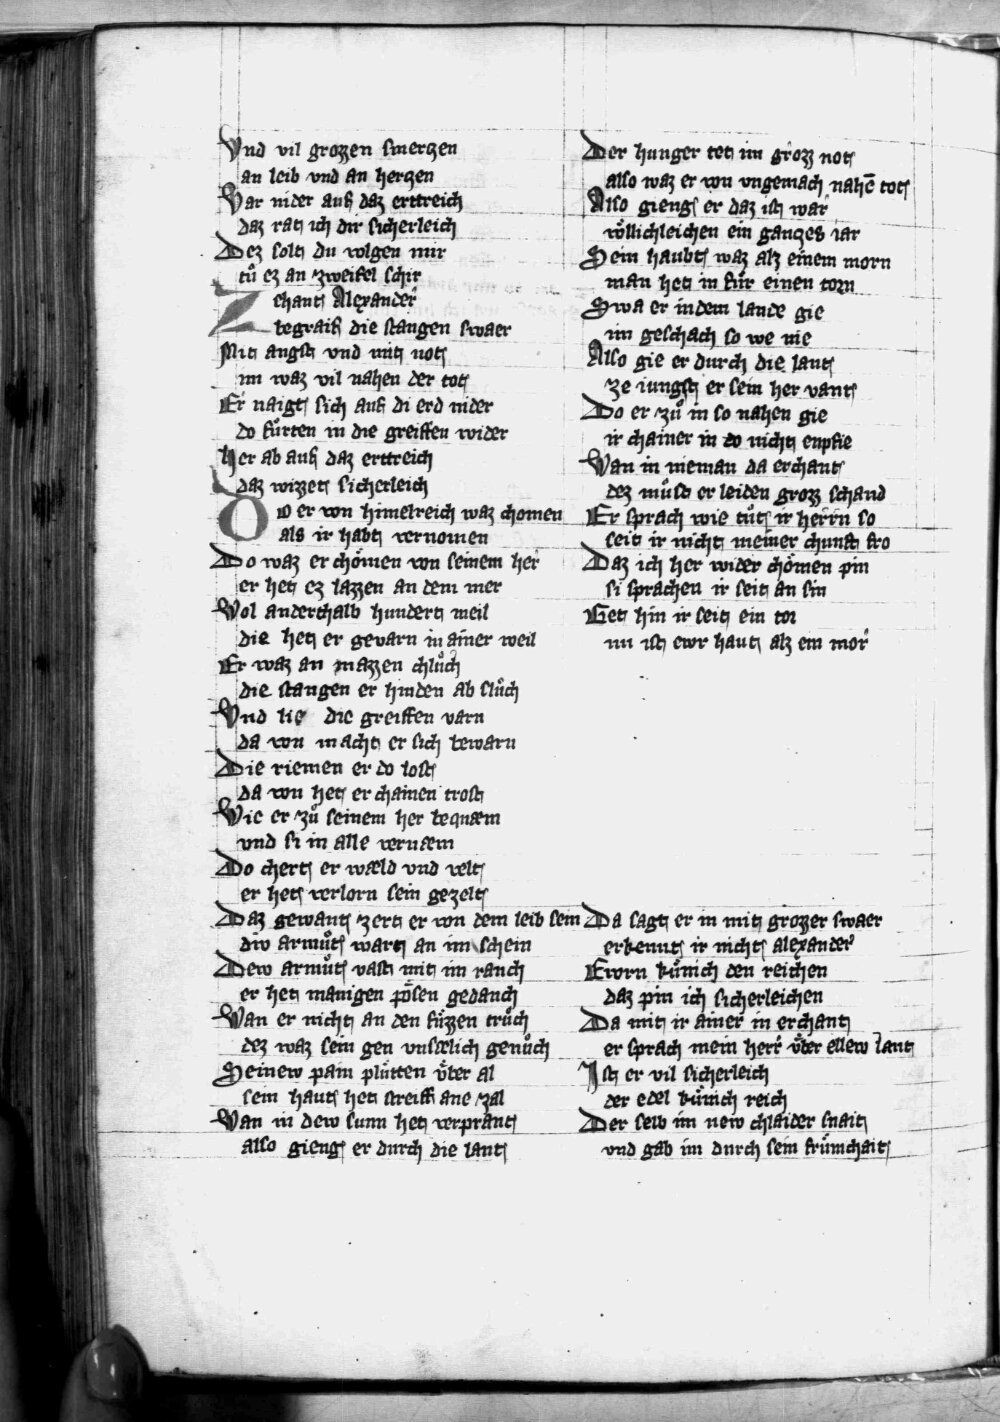 Vnd vil grozzen smerczen
an leib vnd an herczen
Var nider auf daz erttreich
daz rat ich dir sicherleich
Dez solt du volgen mir
tuͤ ez an zweifel schir
Zehant Alexander
begraif die stangen swaer
Mit angst vnd mit not
im waz vil nahen der tot
Er naigt sich auf di erd nider
do fuͤrten in die greiffen wider
Her ab auf daz erttreich
daz wizzet sicherleich
Do er von himelreich waz chomen
als ir habt vernomen
Do waz er choͤmen von seinem her
er het ez lazzen an dem mer
Wol anderthalb hundert meil
die het er gevarn in ainer weil
Er waz an mazzen chluͦch
die stangen er hinden ab sluͦch
Vnd lie die greiffen varn
da von macht er sich bewarn
Die riemen er do lost
da von het er chainen trost
Wie er zuͦ seinem her bequaem
vnd si in alle vernaem
Do chert er waeld vnd velt
er het verlorn sein gezelt
Daz gewant zert er von dem leib sein
diw armuͦt wart an im schein
Dew armuͦt vast mit im ranch
er het manigen poͤsen gedanch
Wan er nicht an den fuͤzzen truͦch
dez waz sein gen vnsaelich genuͦch
Seinew pain pluͤtten vͤber al
sein haut het streiff ane zal
Wan in dew sunn het verprant
also gieng er durch die lant
Der hunger tet im grozz not
also waz er von vngemach nahē tot
Also gieng er daz ist war
voͤllichleichen ein ganczes iar
Sein haubt waz alz einem morn
man het in fuͤr einen torn
Swa er in dem lande gie
im geschach so we nie
Also gie er durch die lant
ze iungst er sein her vant
Do er zuͦ in so nahen gie
ir chainer in do nicht enpfie
Wan in nieman da erchant
dez muͦst er leiden grozz schand
Er sprach wie tuͦt ir herrn so
seit ir nicht meiner chunft fro
Daz ich her wider choͤmen pin
si sprachen ir seit an sin
Get hin ir seit ein tor
nu ist ewr haut alz ein mor
Da sagt er in mit grozzer swaer
erkennt ir nicht alexander
Ewrn kuͤnich den reichen
daz pin ich sicherleichen
Da mit ir ainer in erchant
er sprach mein herr vͤber ellew lant
Ist er vil sicherleich
der edel kuͤnich reich
Der selb im new chlaider snait
vnd gab im durch sein fruͤmchait